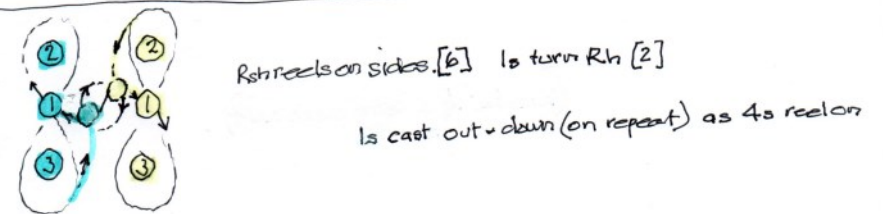 2 2
Rsh reels on sides. [6] 1s turn Rh [2]
1 1
1s cast out + down (on repeat) as 4s reel on
3 3